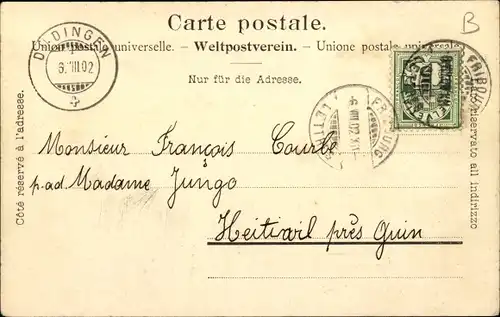 Carte postale.
B
Union postale universelle. – Weltpostverein. – Unione postale universale
Nur für die Adresse.
DÜDINGEN
6.VIII.02
FRIBOURG
LETTR
6.VIII.02.XII
Côté réservé à l'adresse.
Lato riservato all indirizzo
Monsieur François Courbe
p.ad. Madame Jungo
Heitiwil près Guin